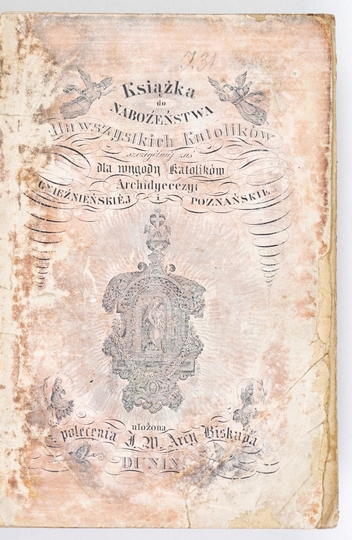 Książka
do
NABOŻEŃSTWA
dla wszystkich Katolików
szczególniej zaś
dla wygody Katolików
Archidyecezyi
GNIEŹNIEŃSKIÉJ i POZNAŃSKIÉJ
ułożona
z polecenia J. W. Arcy Biskupa
DUNIN